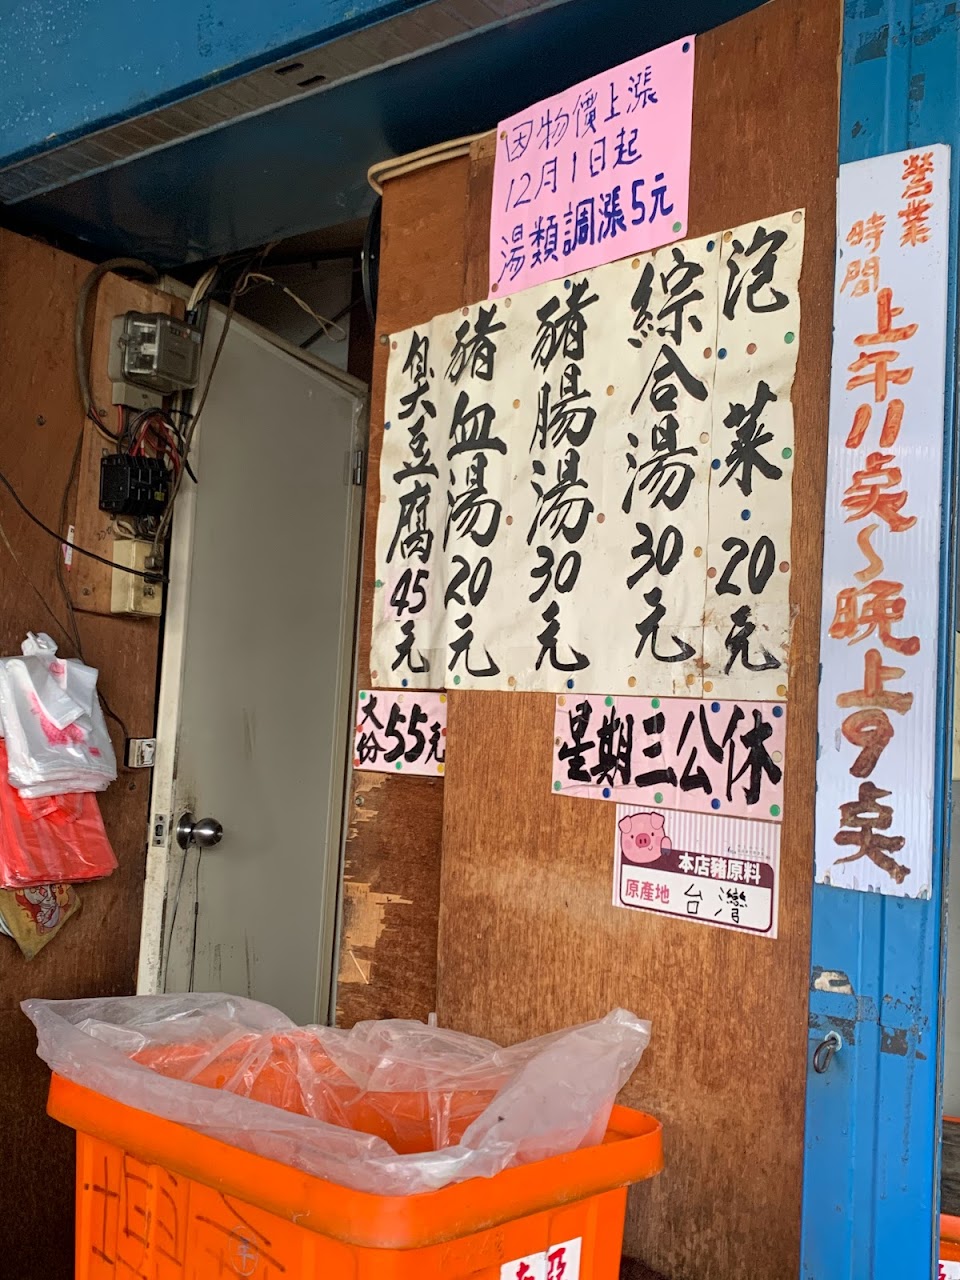 因物價上漲
12月1日起
湯類調漲5元
泡菜20元
綜合湯30元
豬腸湯30元
豬血湯20元
臭豆腐45元
大份55元
星期三公休
本店豬原料
原產地 台灣
營業
時間
上午11点～晚上9点